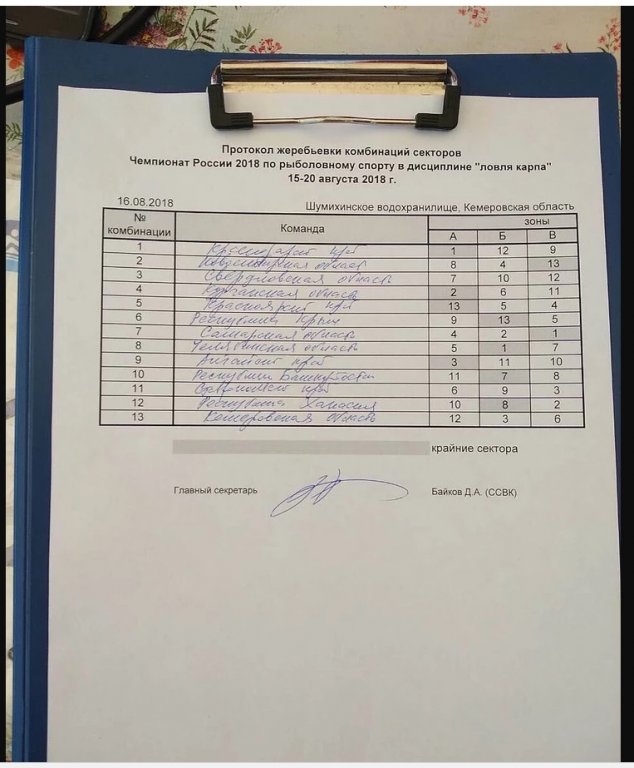 Протокол жеребьевки комбинаций секторов
Чемпионат России 2018 по рыболовному спорту в дисциплине "ловля карпа"
15-20 августа 2018 г.
16.08.2018 Шумихинское водохранилище, Кемеровская область
№ комбинации Команда зоны
А Б В
1 Краснодарский край 1 12 9
2 Новосибирская область 8 4 13
3 Свердловская область 7 10 12
4 Курганская область 2 6 11
5 Красноярский край 13 5 4
6 Республика Крым 9 13 5
7 Самарская область 4 2 1
8 Челябинская область 5 1 7
9 Алтайский край 3 11 10
10 Республика Башкортостан 11 7 8
11 край 6 9 3
12 Республика Хакасия 10 8 2
13 Кемеровская область 12 3 6
крайние сектора
Главный секретарь Байков Д.А. (ССВК)